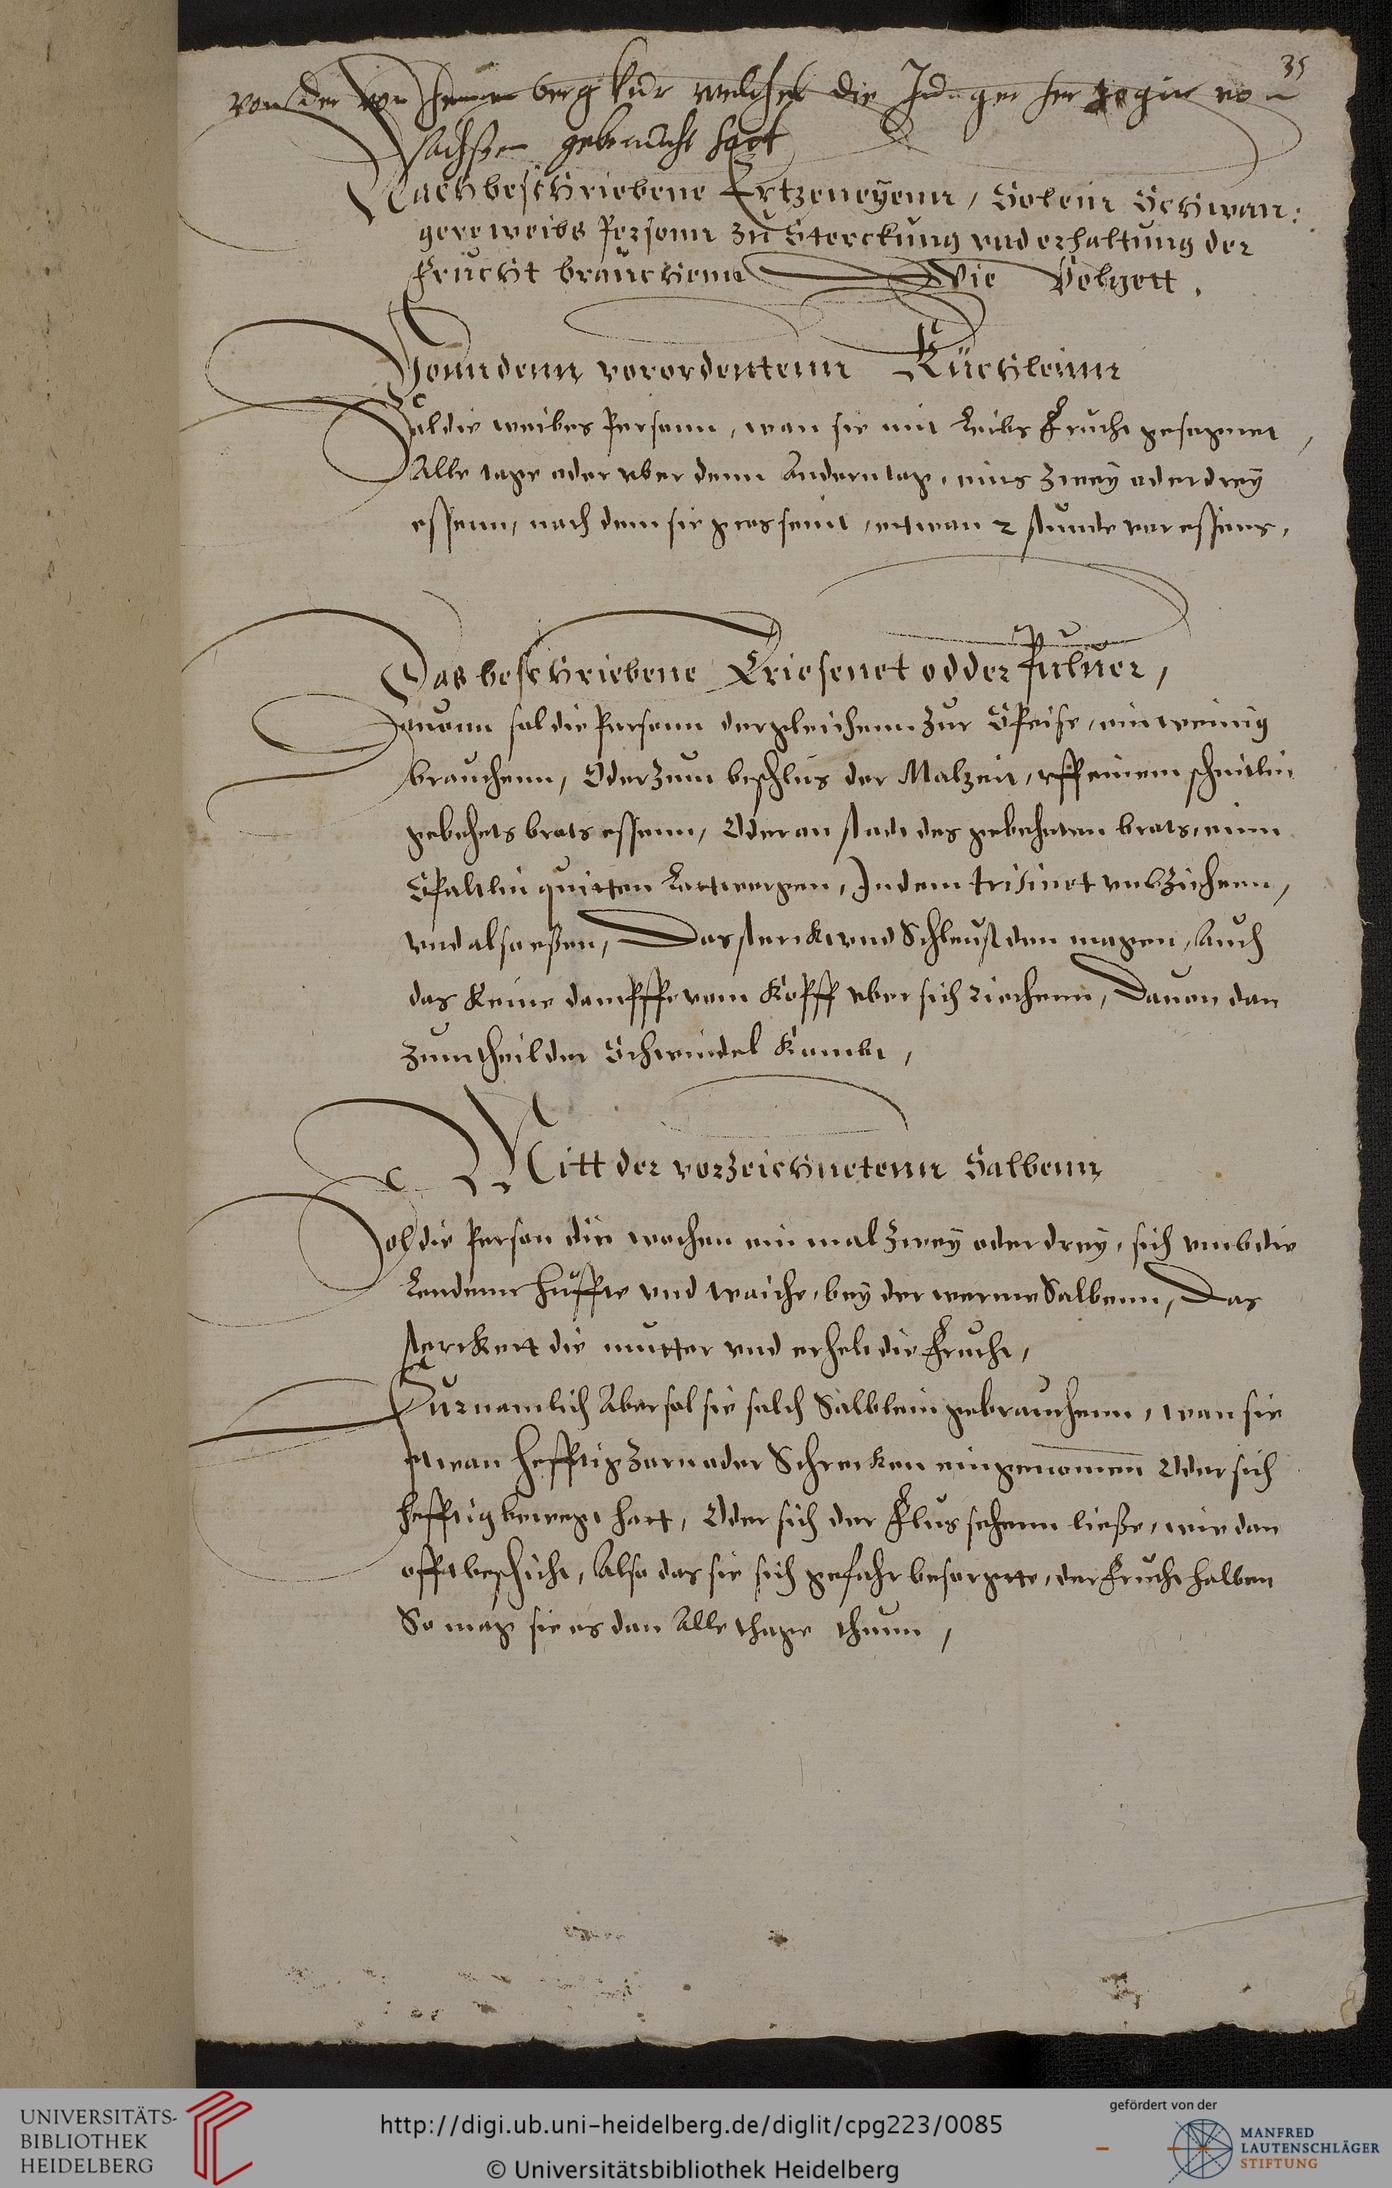 35
von der von hennenberg kur welches die Junger hertzogin von
sachßen gebraucht hatt
Nachbeschriebene Ertzeneÿenn, Solenn Schwan:
gere weibs Personn zu Sterckung vnd erhaltung der
Frucht brauchenn Wie Volgett.
Vonn denn verordentenn Küchleinn
Sol die weibes Personn, wan sie mit Leibs Frucht gesegnet,
Alle tage oder vber denn Anderntag, eins zweÿ oder dreÿ
essenn, nach dem sie gros seint, etwan 2 stunde vor essens,
Das beschriebene Triesenet odder Puluer,
Dauonn sol die Personn dergleichenn zur Speise, ein wennig
brauchenn, Oder zum beschlus der Malzeit, vff einem schnitlin
gebehets brots essenn, Oder an stadt des gebeheten brots, einn
Spaltlin quitten Lattwergen, In dem trisinet vmbzihenn,
vnd also eßen, Das sterckt vnd Schleust den magen, Auch
das keine dampffe vom Kopff vber sich ziechenn, Dauon dan
zum theil der Schwindel kombt,
Mitt der vorzeichnetenn Salbenn
Sol die Person die wochen ein mal zweÿ oder dreÿ, sich vmb die
Lendenn huffte vnd waiche, beÿ der werme Salbenn, Das
sterckett die mutter vnd erhelt die Frucht,
Furnemlich Aber sol sie solch Salblein gebrauchenn, wan sie
etwan hefftig zorn oder Schrecken eingenomen Oder sich
hefftig bewegt hatt, Oder sich der Flus sehenn ließe, wie dan
offt beschicht, Also das sie sich gefahr besorgtte, der Frucht halben
So mag sie es dan Alle thage thunn,
UNIVERSITÄTS-
BIBLIOTHEK
HEIDELBERG
http://digi.ub.uni-heidelberg.de/diglit/cpg223/0085
© Universitätsbibliothek Heidelberg
gefördert von der
MANFRED
LAUTENSCHLÄGER
STIFTUNG